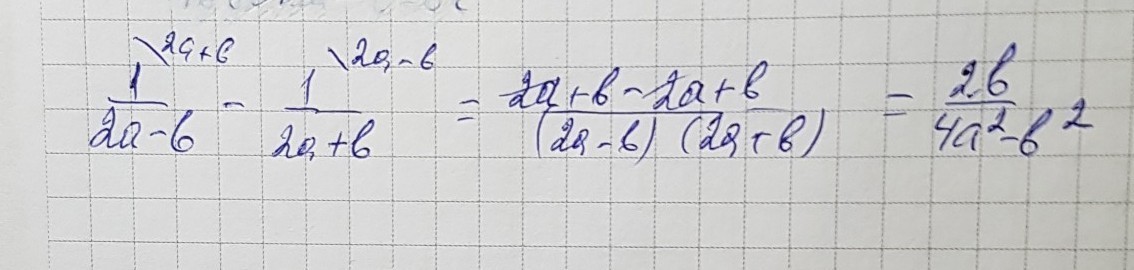 1\2a+b / 2a-b - 1\2a-b / 2a+b = 2a+b-2a+b / (2a-b) (2a+b) = 2b / 4a²-b²